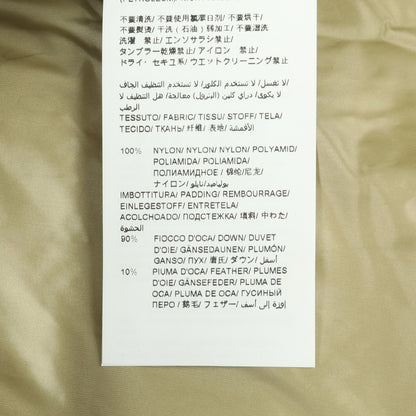 不要清洗/ 不要使用氯漂白剂/ 不要烘干/
不要熨烫/ 干洗 (石油) 弱加工/ 不要湿洗
洗濯 禁止/ エンソサラシ 禁止/
タンブラー乾燥禁止/ アイロン 禁止/
ドライ・セキユ系/ ウエットクリーニング禁止/
لا تغسل/ لا تستخدم الكلور/ لا تستخدم التنظيف الجاف/
لا يكوى/ دراي كلين (البترول) معالجة/ هل التنظيف
الرطب
TESSUTO/ FABRIC/ TISSU/ STOFF/ TELA/
TECIDO/ ТКАНЬ/ 纤维/ 表地/ الأقمشة/
100% NYLON/ NYLON/ NYLON/ POLYAMID/
POLIAMIDA/ POLIAMIDA/
ПОЛИАМИДНОЕ / 锦纶/尼龙/
ナイロン/ بولياميد/نايلو/
IMBOTTITURA/ PADDING/ REMBOURRAGE/
EINLEGESTOFF/ ENTRETELA/
ACOLCHOADO/ ПОДСТЕЖКА/ 填料/ 中わた/
الحشوة
90% FIOCCO D'OCA/ DOWN/ DUVET
D'OIE/ GÄNSEDAUNEN/ PLUMÓN/
GANSO/ ПУХ/ 鹰氏/ ダウン/ أسفل/
10% PIUMA D'OCA/ FEATHER/ PLUMES
D'OIE/ GÄNSEFEDER/ PLUMA DE
OCA/ PLUMA DE OCA/ ГУСИНЫЙ
ПЕРО / 鹅毛/ フェザー/ إوزة إلى أسف/